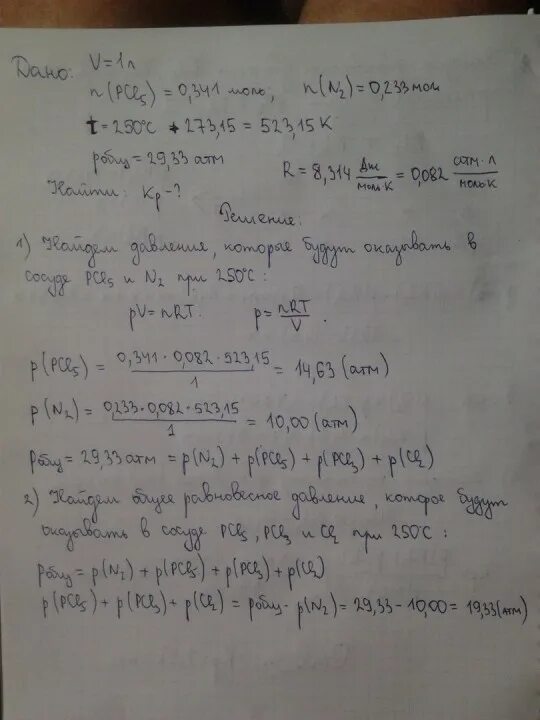 Дано: V = 1л
n(PCl₅) = 0,341 моль, n(N₂) = 0,233 мол
t = 250°C + 273,15 = 523,15 K
pобщ = 29,33 атм
R = 8,314 Дж/моль·K = 0,082 атм·л/моль·K
Найти: Kp - ?
Решение:
1) Найдем давления, которые будут оказывать в
сосуде PCl₅ и N₂ при 250°C:
pV = nRT. p = nRT/V.
p(PCl₅) = 0,341·0,082·523,15/1 = 14,63 (атм)
p(N₂) = 0,233·0,082·523,15/1 = 10,00 (атм)
pобщ = 29,33 атм = p(N₂) + p(PCl₅) + p(PCl₃) + p(Cl₂)
2) Найдем общее равновесное давление, которое будут
оказывать в сосуде PCl₅, PCl₃ и Cl₂ при 250°C:
pобщ = p(N₂) + p(PCl₅) + p(PCl₃) + p(Cl₂)
p(PCl₅) + p(PCl₃) + p(Cl₂) = pобщ - p(N₂) = 29,33 - 10,00 = 19,33 (атм)